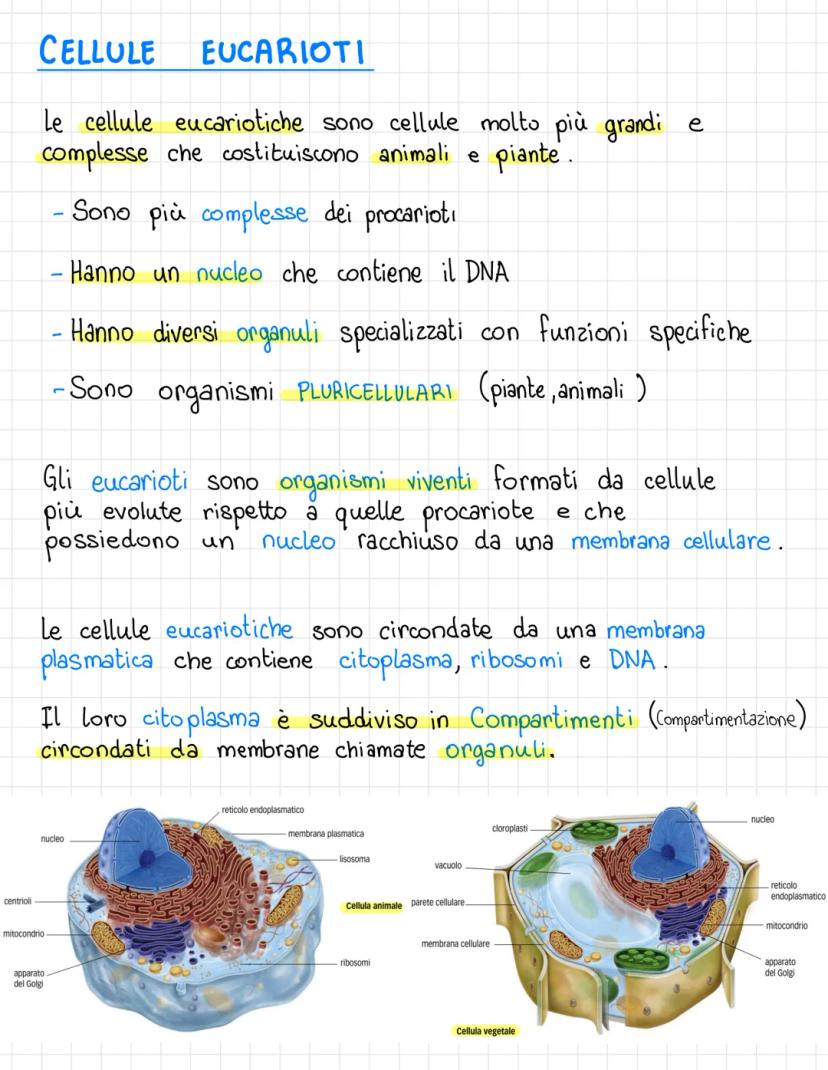 CELLULE EUCARIOTI
Le cellule eucariotiche sono cellule molto più grandi e
complesse che costituiscono animali e piante.
- Sono più complesse dei procarioti
- Hanno un nucleo che contiene il DNA
- Hanno diversi organuli specializzati con funzioni specifiche
- Sono organismi PLURICELLULARI (piante, animali)
Gli eucarioti sono organismi viventi formati da cellule
più evolute rispetto a quelle procariote e che
possiedono un nucleo racchiuso da una membrana cellulare.
Le cellule eucariotiche sono circondate da una membrana
plasmatica che contiene citoplasma, ribosomi e DNA.
Il loro citoplasma è suddiviso in Compartimenti (Compartimentazione)
circondati da membrane chiamate organuli.
reticolo endoplasmatico
nucleo
membrana plasmatica
lisosoma
centrioli
Cellula animale
mitocondrio
ribosomi
apparato
del Golgi
cloroplasti
nucleo
vacuolo
reticolo
endoplasmatico
parete cellulare
mitocondrio
membrana cellulare
apparato
del Golgi
Cellula vegetale